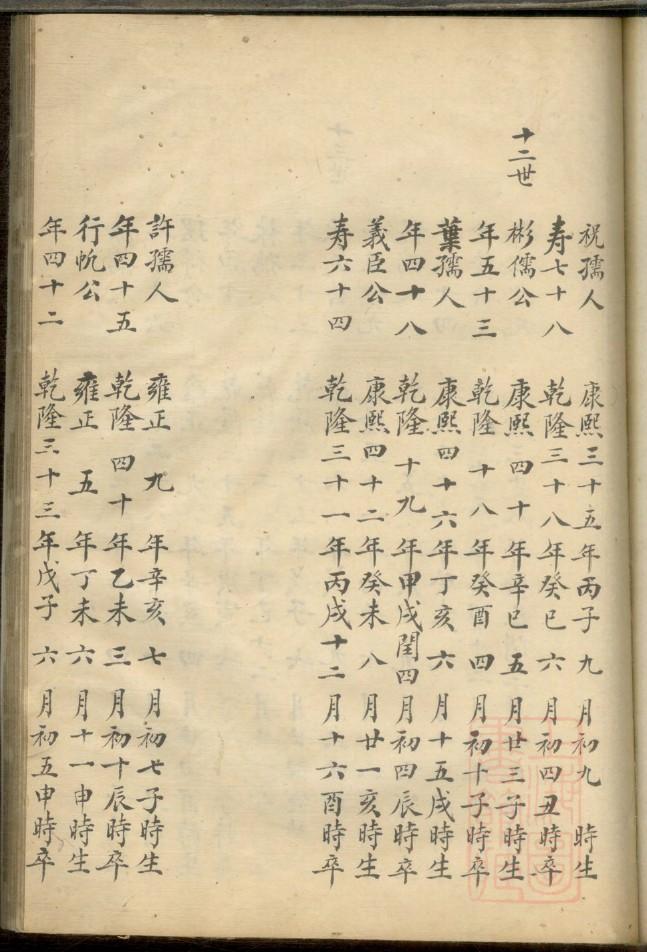 祝孺人 康熙三十五年丙子九月初九 時生
寿七十八 乾隆三十八年癸巳六月初四丑時卒
十二世
彬儒公 康熙四十年辛巳五月廿三子時生
年五十三 乾隆十八年癸酉四月初十子時卒
葉孺人 康熙四十六年丁亥六月十五戌時生
年四十八 乾隆十九年甲戌閏四月初四辰時卒
義臣公 康熙四十二年癸未八月廿一亥時生
寿六十四 乾隆三十一年丙戌十二月十六酉時卒
許孺人 雍正九年辛亥七月初七子時生
年四十五 乾隆四十年乙未三月初十辰時卒
行帆公 雍正五年丁未六月十一申時生
年四十二 乾隆三十三年戊子六月初五申時卒